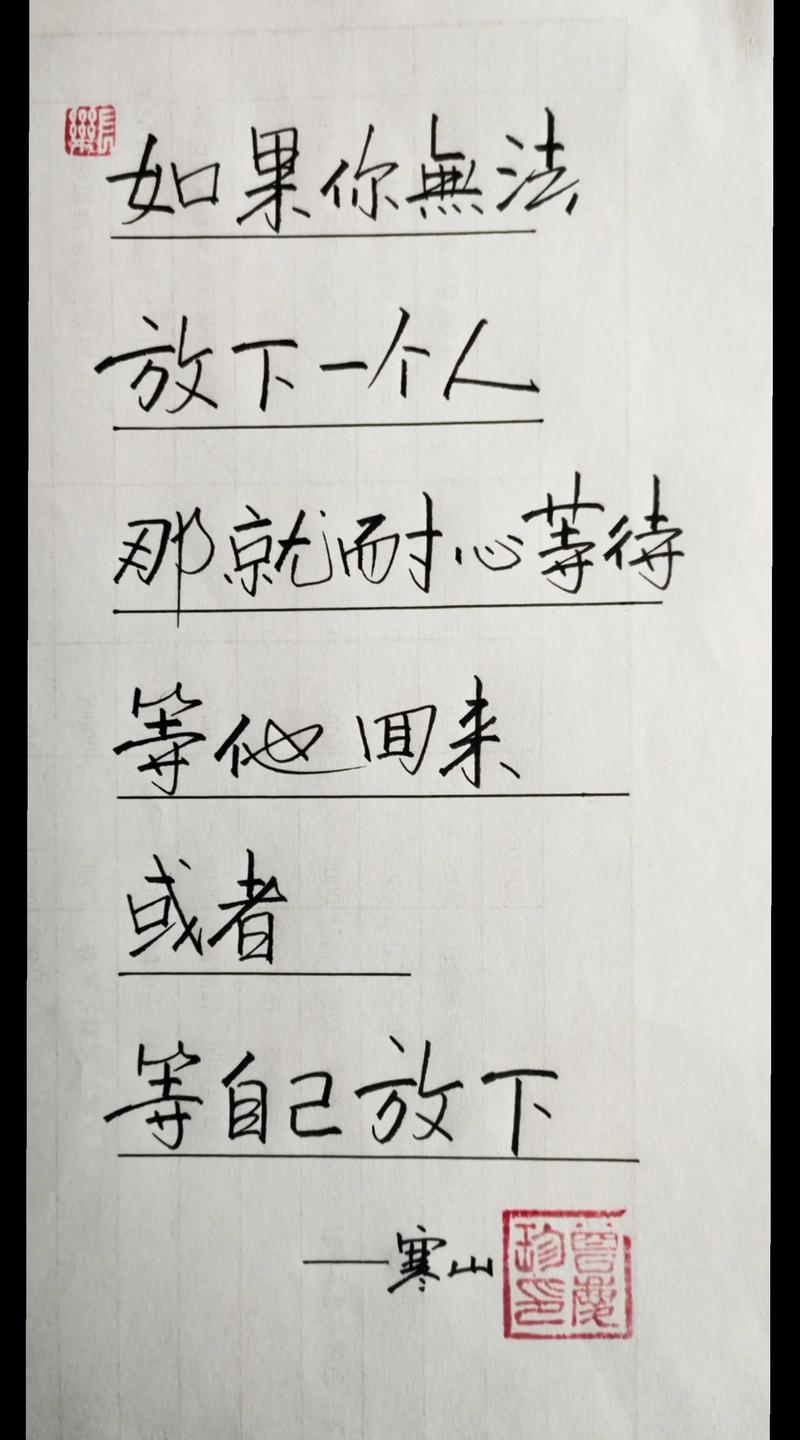 如果你無法
放下一个人
那就耐心等待
等他回来
或者
等自己放下
——寒山